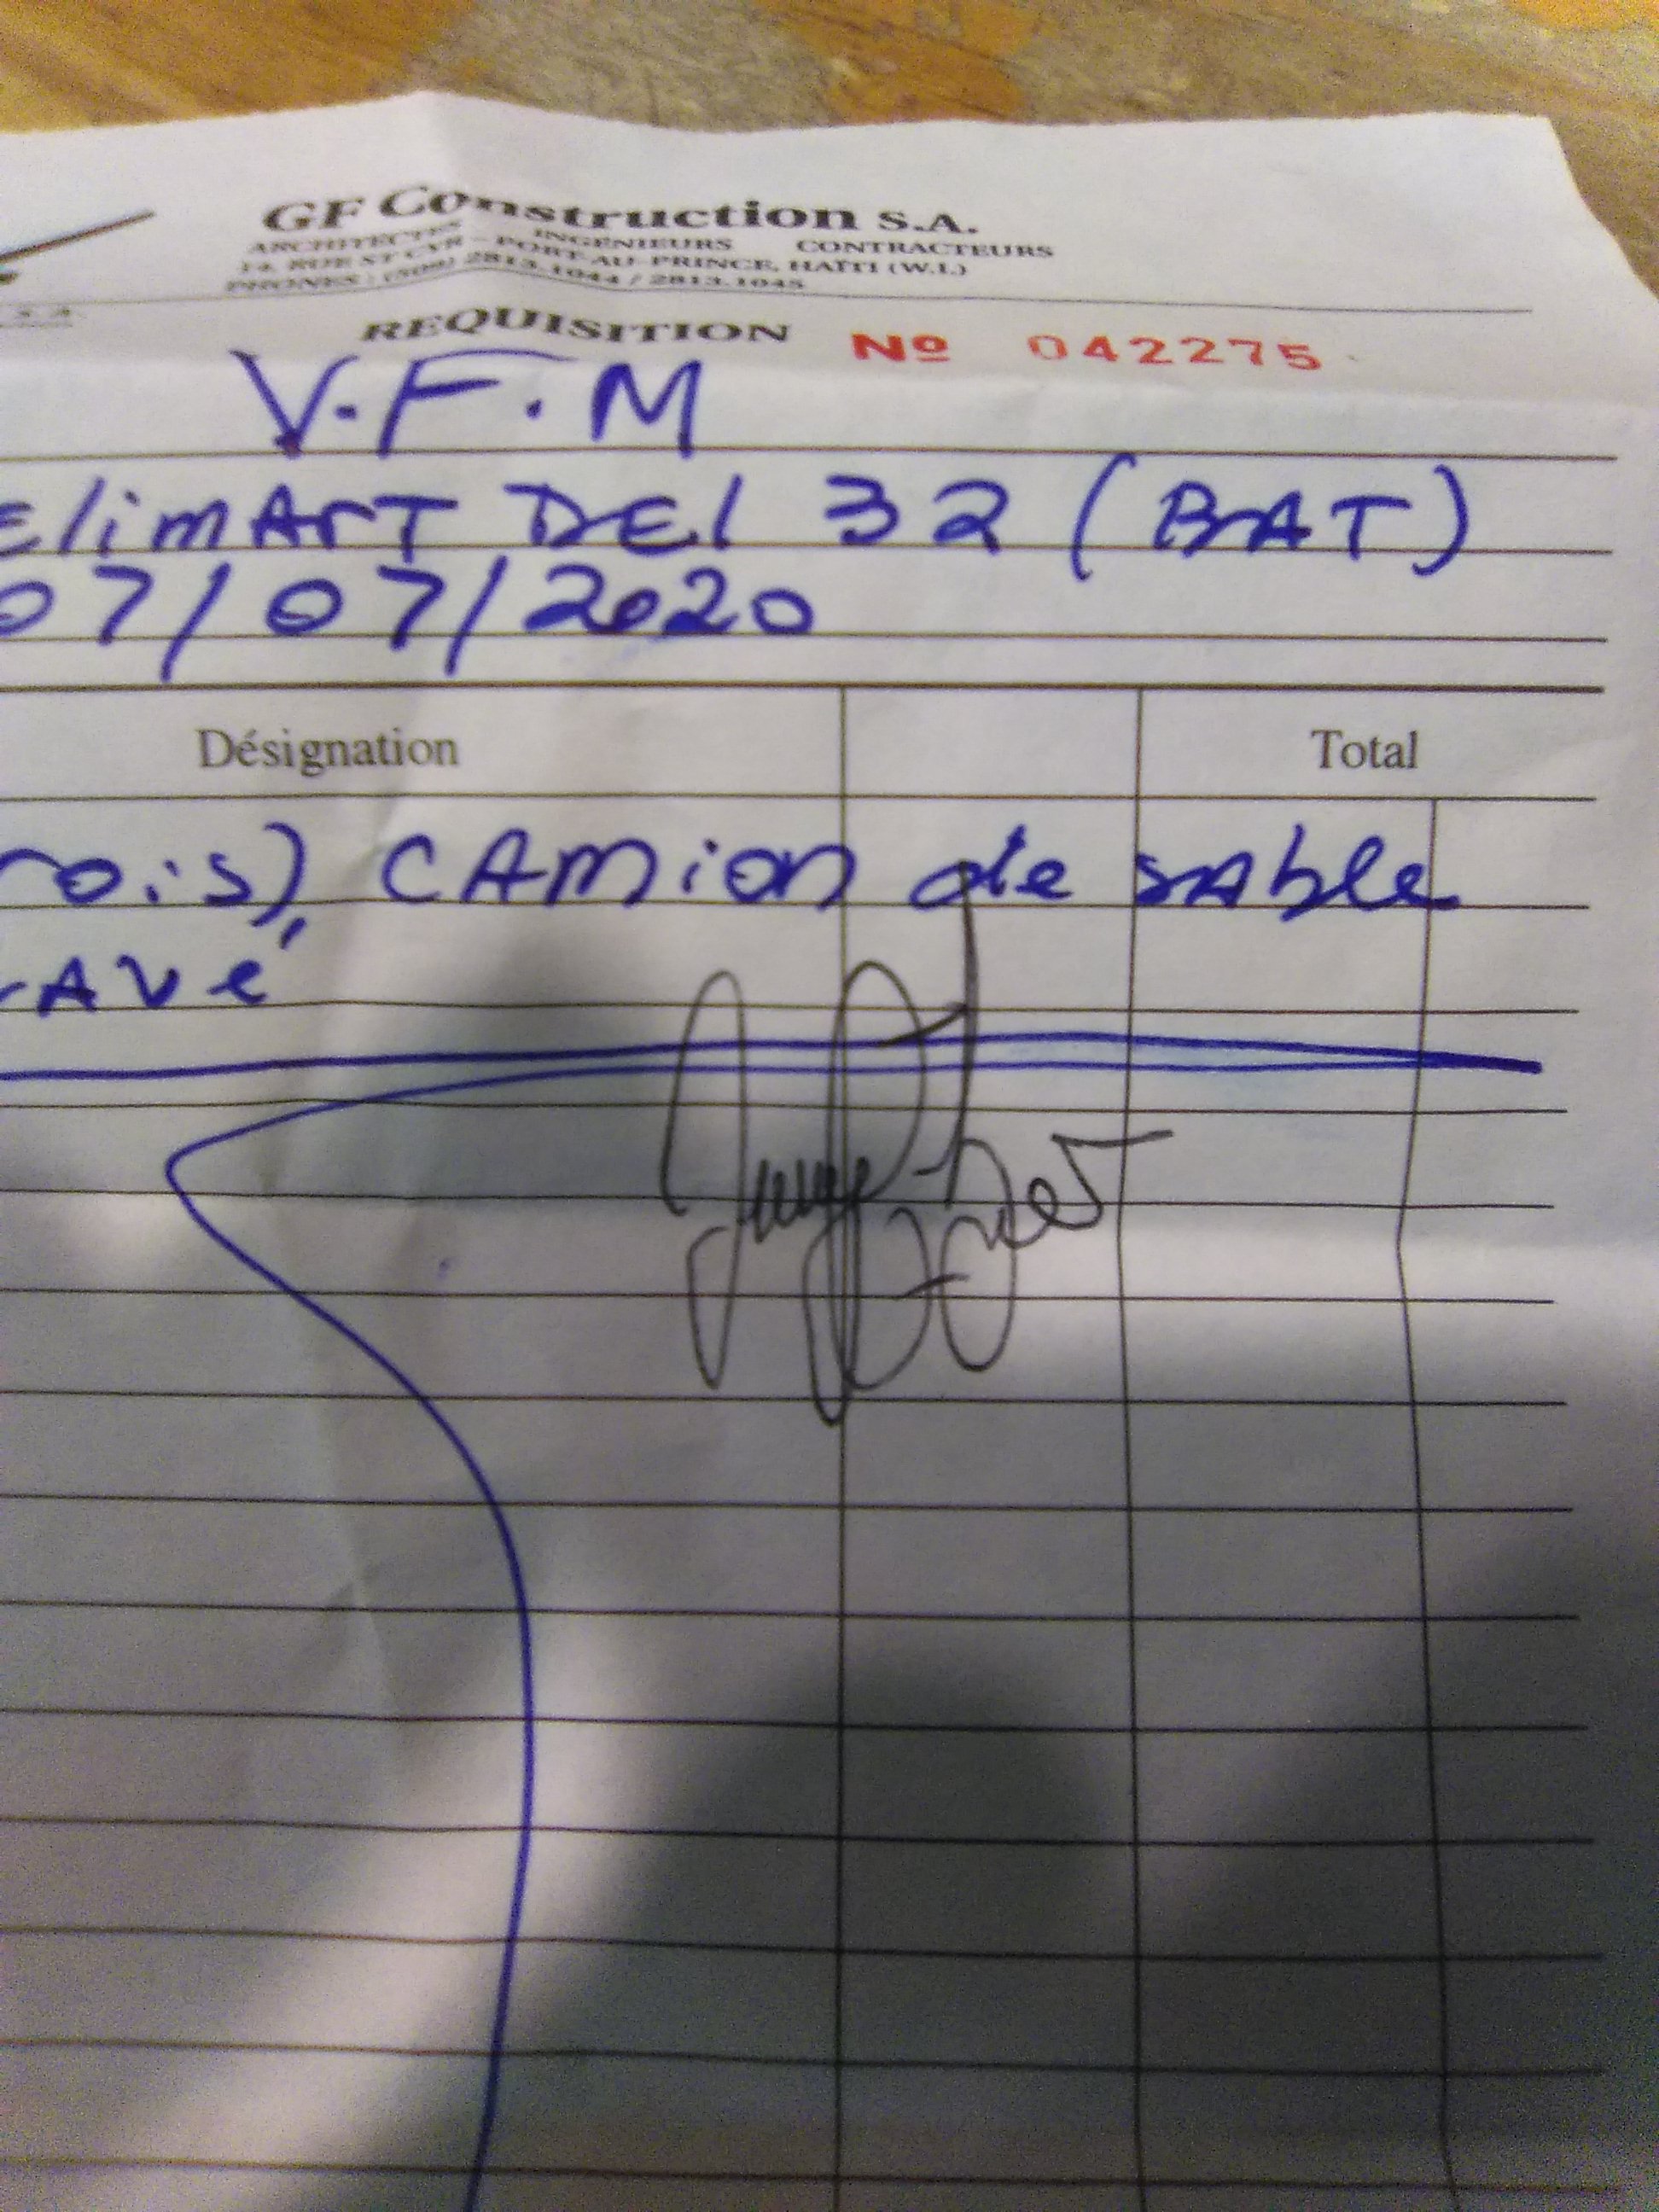 GF Construction S.A.
ARCHITECTES INGÉNIEURS CONTRACTEURS
14, RUE ST CYR - PORT-AU-PRINCE, HAÏTI (W.I.)
PHONES : (509) 2813.1044 / 2813.1045
S.A.
REQUISITION Nº 042275
V.F.M
ElimArT DEl 32 (BAT)
07/07/2020
Désignation Total
rois), CAmion de sAble
AVé